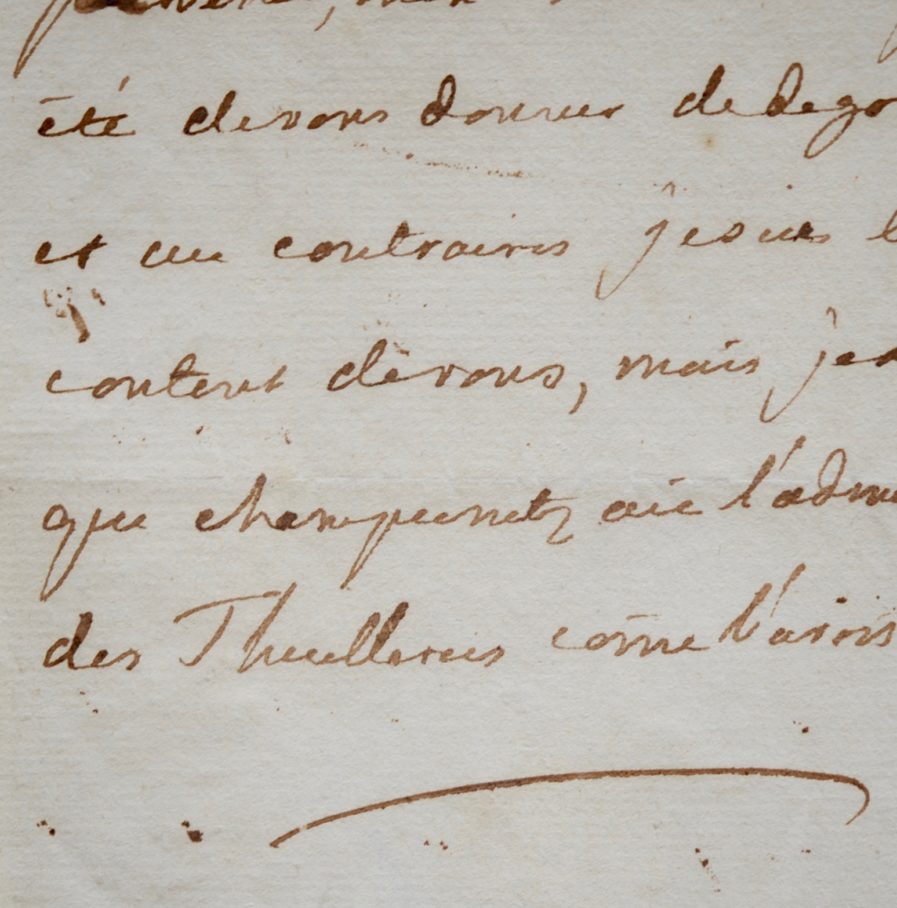 été devous donner dedego
et au contraires jesuis
contents devous, mais je
que champcenetz aie l'adm
des Thuilleries come l'avois